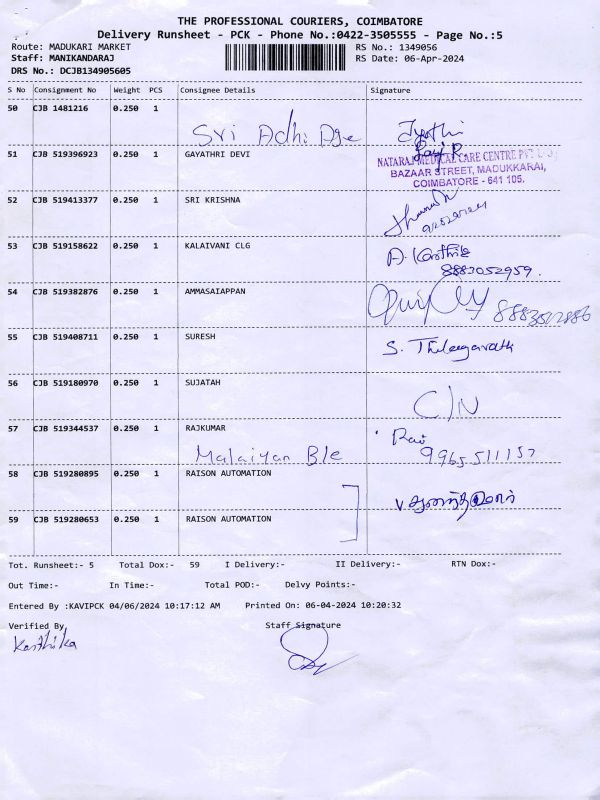 THE PROFESSIONAL COURIERS, COIMBATORE
Delivery Runsheet - PCK - Phone No.:0422-3505555 - Page No.:5
Route: MADUKARI MARKET RS No.: 1349056
Staff: MANIKANDARAJ RS Date: 06-Apr-2024
DRS No.: DCJB134905605
S No Consignment No Weight PCS Consignee Details Signature
50 CJB 1481216 0.250 1
Sri Adhi Age Jyothi
51 CJB 519396923 0.250 1 GAYATHRI DEVI
NATARAJ MEDICAL CARE CENTRE
BAZAAR STREET, MADUKKARAI,
COIMBATORE - 641 105.
52 CJB 519413377 0.250 1 SRI KRISHNA
53 CJB 519158622 0.250 1 KALAIVANI CLG
A. Karthik
8883052959.
54 CJB 519382876 0.250 1 AMMASAIAPPAN
55 CJB 519408711 0.250 1 SURESH
56 CJB 519180970 0.250 1 SUJATAH
C/N
57 CJB 519344537 0.250 1 RAJKUMAR
Malaiyan Ble 9965511157
58 CJB 519280895 0.250 1 RAISON AUTOMATION
59 CJB 519280653 0.250 1 RAISON AUTOMATION
Tot. Runsheet:- 5 Total Dox:- 59 I Delivery:- II Delivery:- RTN Dox:-
Out Time:- In Time:- Total POD:- Delvy Points:-
Entered By :KAVIPCK 04/06/2024 10:17:12 AM Printed On: 06-04-2024 10:20:32
Verified By Staff Signature
Karthika